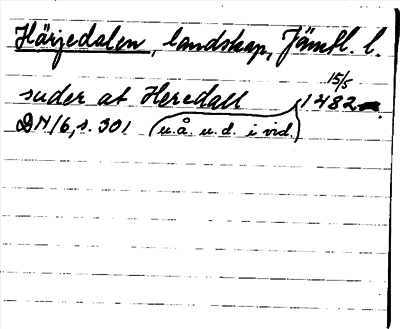 Härjedalen, landskap, Jämtl. l.
15/5
suder at Heredall 1482.
DN 16, s. 301 (u.å. u.d. i vid.)